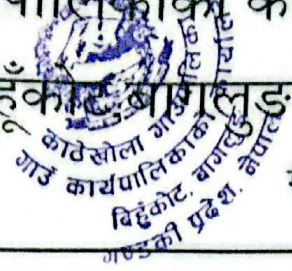 पालिकाको क
हूँकोट, बागलुङ
काठेखोला गाउँपालिका
गाउँ कार्यपालिकाको कार्यालय
बिहुँकोट, बागलुङ
गण्डकी प्रदेश, नेपाल